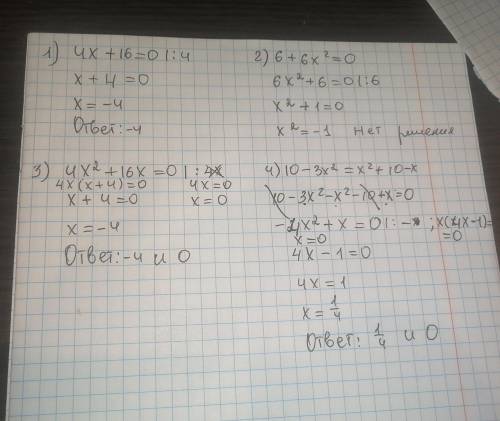 1) 4x + 16 = 0 | : 4
x + 4 = 0
x = -4
Ответ: -4
2) 6 + 6x² = 0
6x² + 6 = 0 | : 6
x² + 1 = 0
x² = -1 Нет решения
3) 4x² + 16x = 0 | : 4x
4x(x+4)=0 4x=0
x + 4 = 0 x = 0
x = -4
Ответ: -4 и 0
4) 10 - 3x² = x² + 10 - x
10 - 3x² - x² - 10 + x = 0
-4x² + x = 0 | : -x ; x(4x-1)=
=0
x=0
4x - 1 = 0
4x = 1
x = 1/4
Ответ: 1/4 и 0